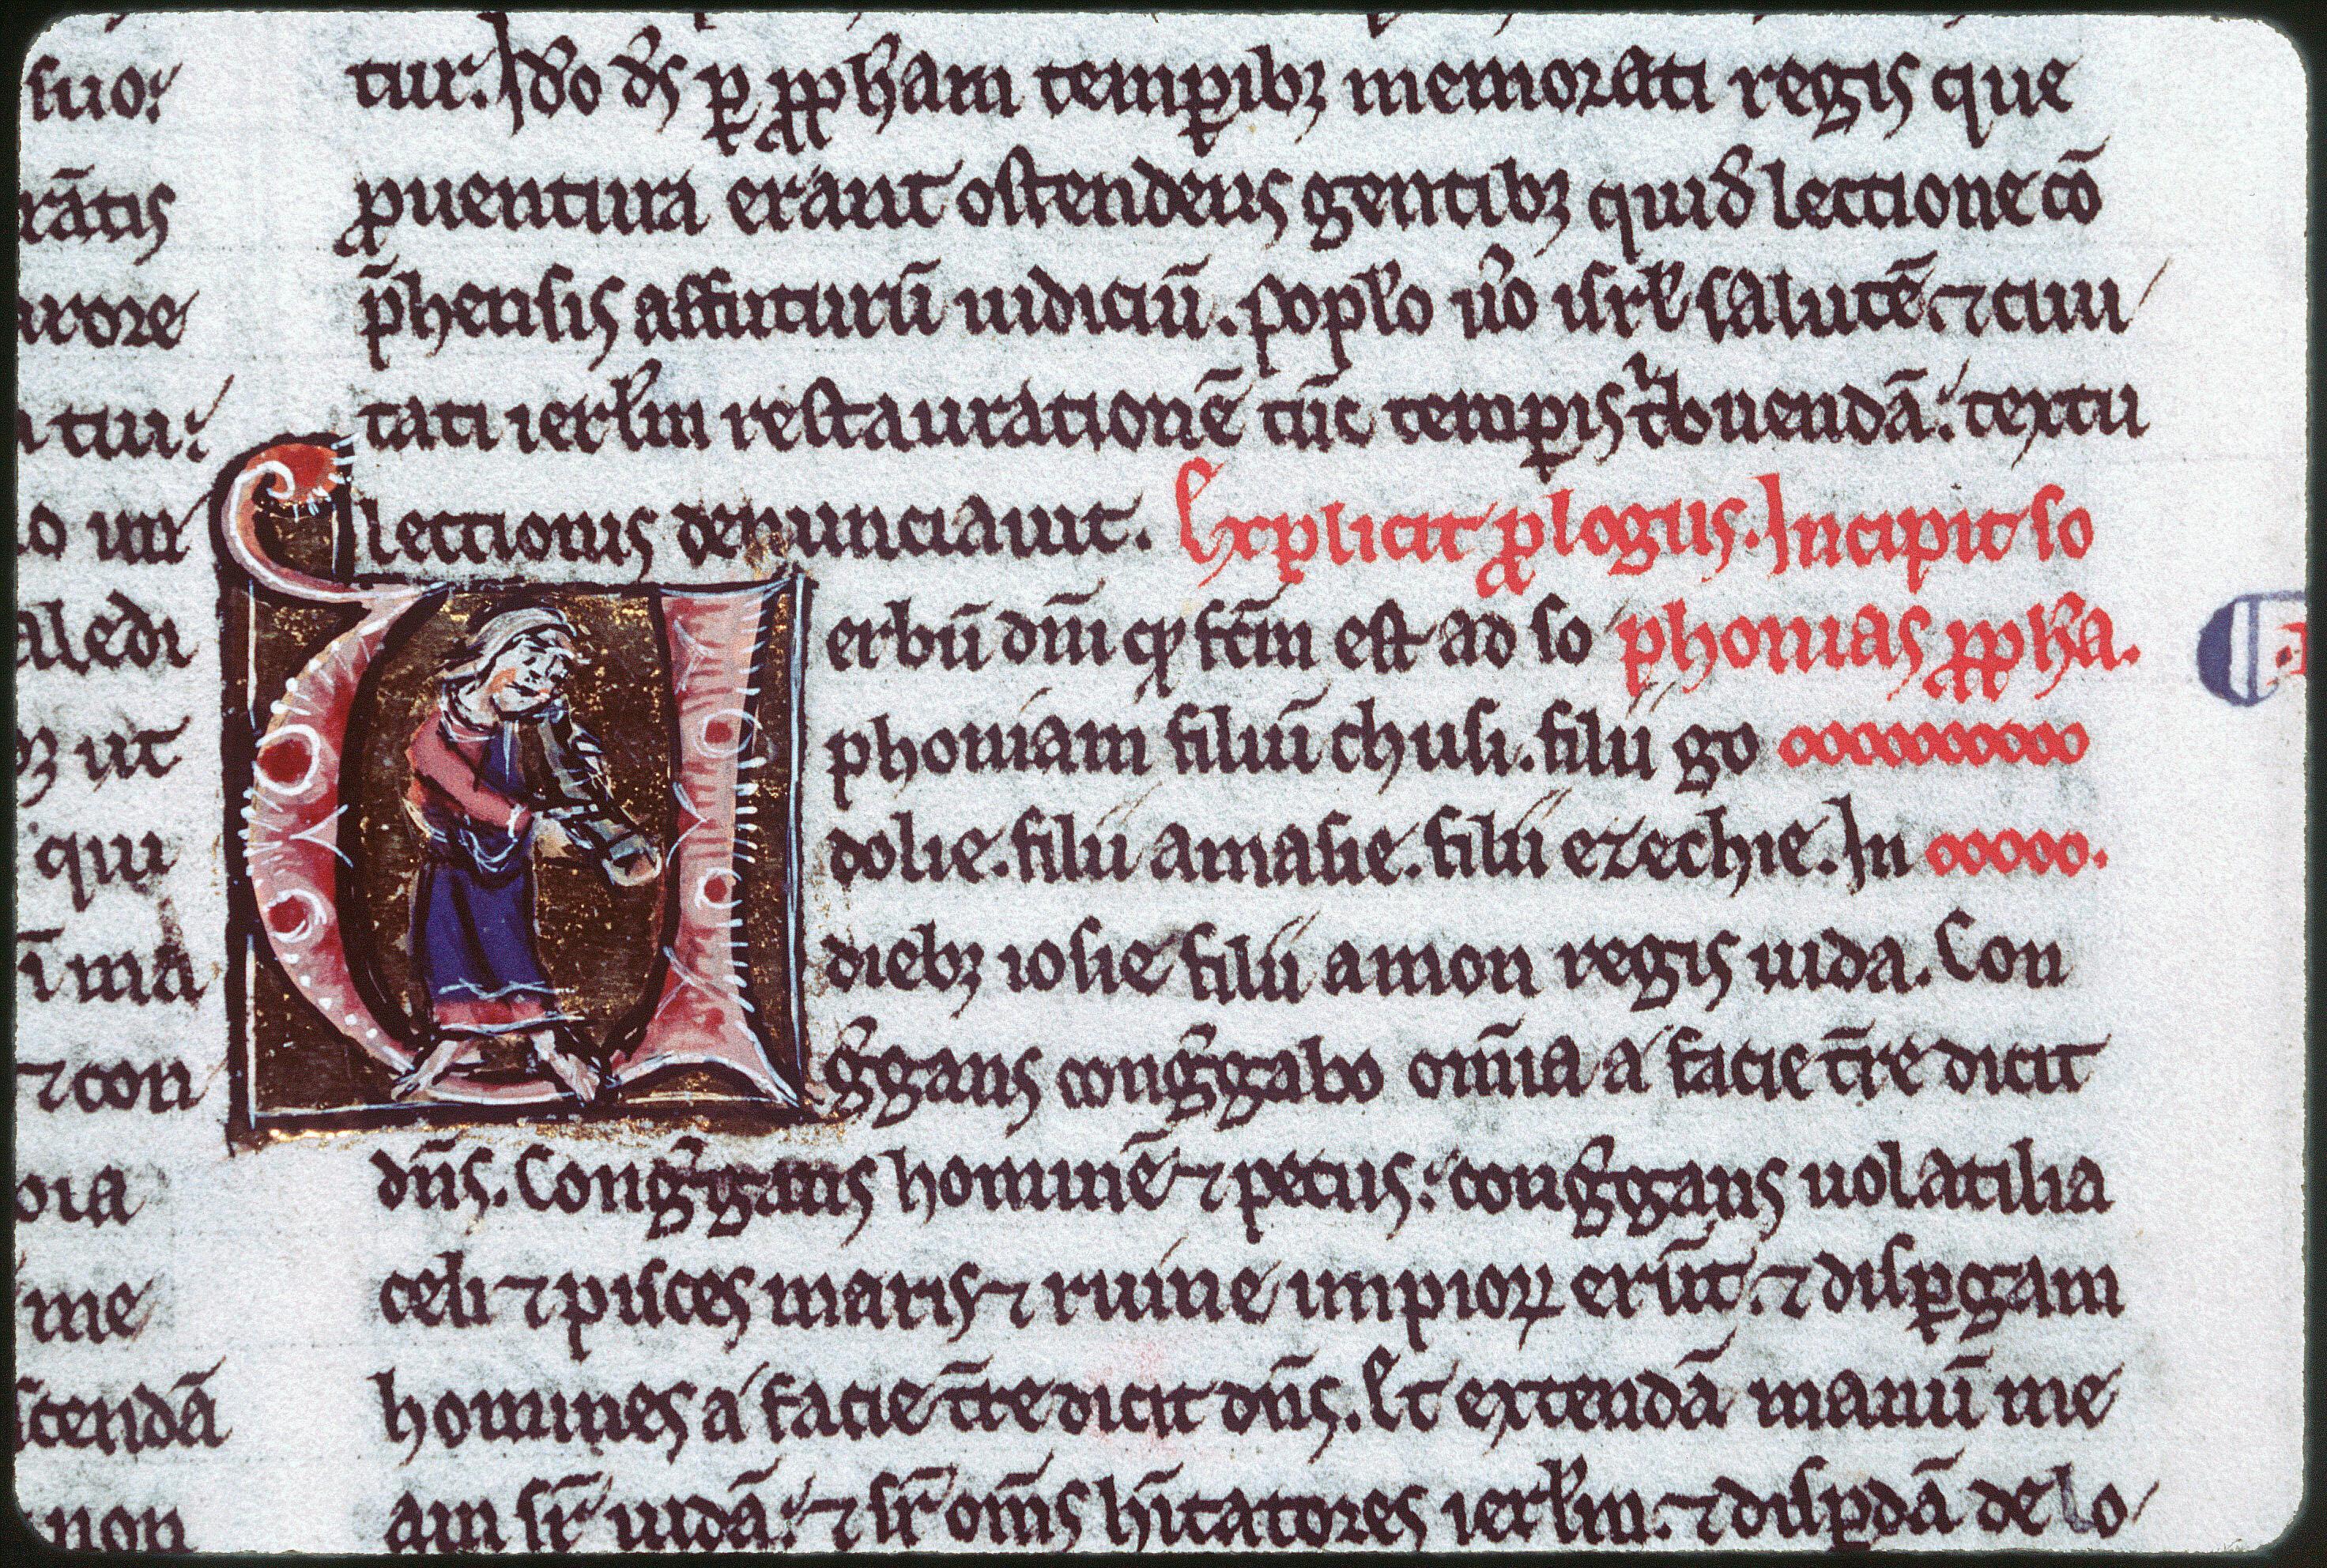 suo.
rãtis
arore
tui.
o un
aledi
bꝫ ut
qui
ĩ ma
⁊ con
oia
me
tendã
non
tur. Ido ds̃ ꝑ ꝓpham temꝑibꝫ memorati regis que
ꝓuentura erant ostendens gentibꝫ qui d̃ lectione cõ
p̃hensis affuturũ iudiciũ. popl̃o ũo isrl̃ salutẽ. ⁊ ciui
tati ierl̃m restaurationẽ tũc temꝑis ꝓmouendã. textu
lectionis denunciauit. Explicit ꝓlogus. Incipit so
erbũ dñi qđ fc̃m est ad so phonias ꝓpha.
phoniam filiũ chusi. filii go
dolie. filii amasie. filii ezechie. In
diebꝫ iosie filii amon regis iuda. Con
g̃gans cong̃gabo om̃ia a facie t̃re dicit
dñs. Cong̃gans hominẽ ⁊ pecus. cong̃gans uolatilia
celi ⁊ pisces maris ⁊ ruine impioꝝ erũt. ⁊ disꝑgam
homines a facie t̃re dicit dñs. Et extendã manũ me
am sr̃ iudã. ⁊ sr̃ om̃s hĩtatores ierl̃m. ⁊ disꝑdã de lo